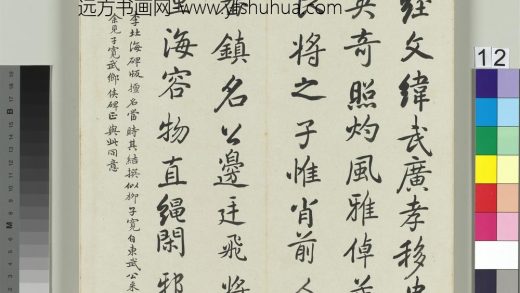 远方书画网 yfshuhua.com
12
經文緯武廣孝移忠
英奇照灼風雅倬
將之子惟肖前人
鎮名公邊廷飛將
海容物直繩閑邪
李北海碑版擅名當時其結撰似柳子寬自東武公來
余見子寬武鄉侯碑正與此同意